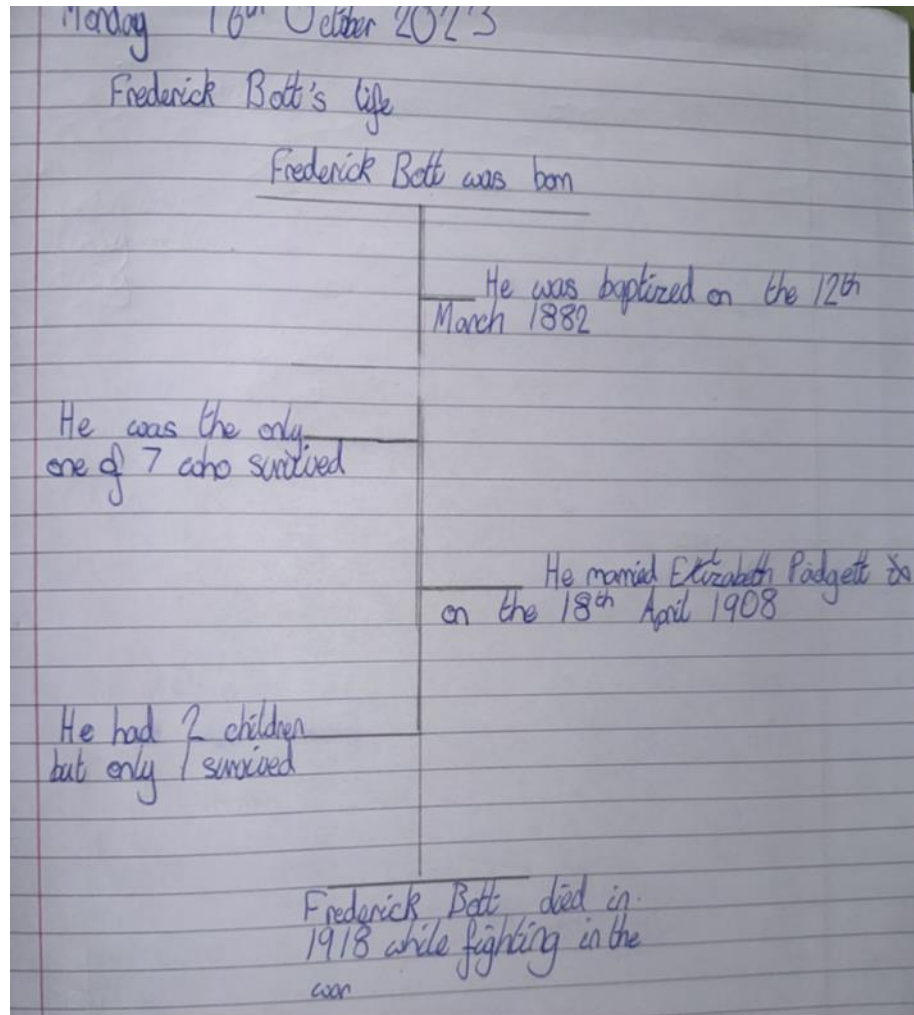 Monday 16th October 2023
Frederick Bott's life
Frederick Bott was born
He was baptized on the 12th
March 1882
He was the only
one of 7 who survived
He married Elizabeth Padgett
on the 18th April 1908
He had 2 children
but only 1 survived
Frederick Bott died in
1918 while fighting in the
war